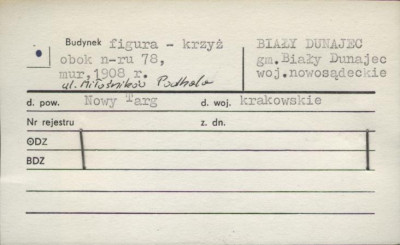 Budynek figura - krzyż BIAŁY DUNAJEC
obok n-ru 78, gm. Biały Dunajec
mur, 1908 r. woj. nowosądeckie
ul. Miłośników Podhala
d. pow. Nowy Targ d. woj. krakowskie
Nr rejestru z dn.
ODZ
BDZ